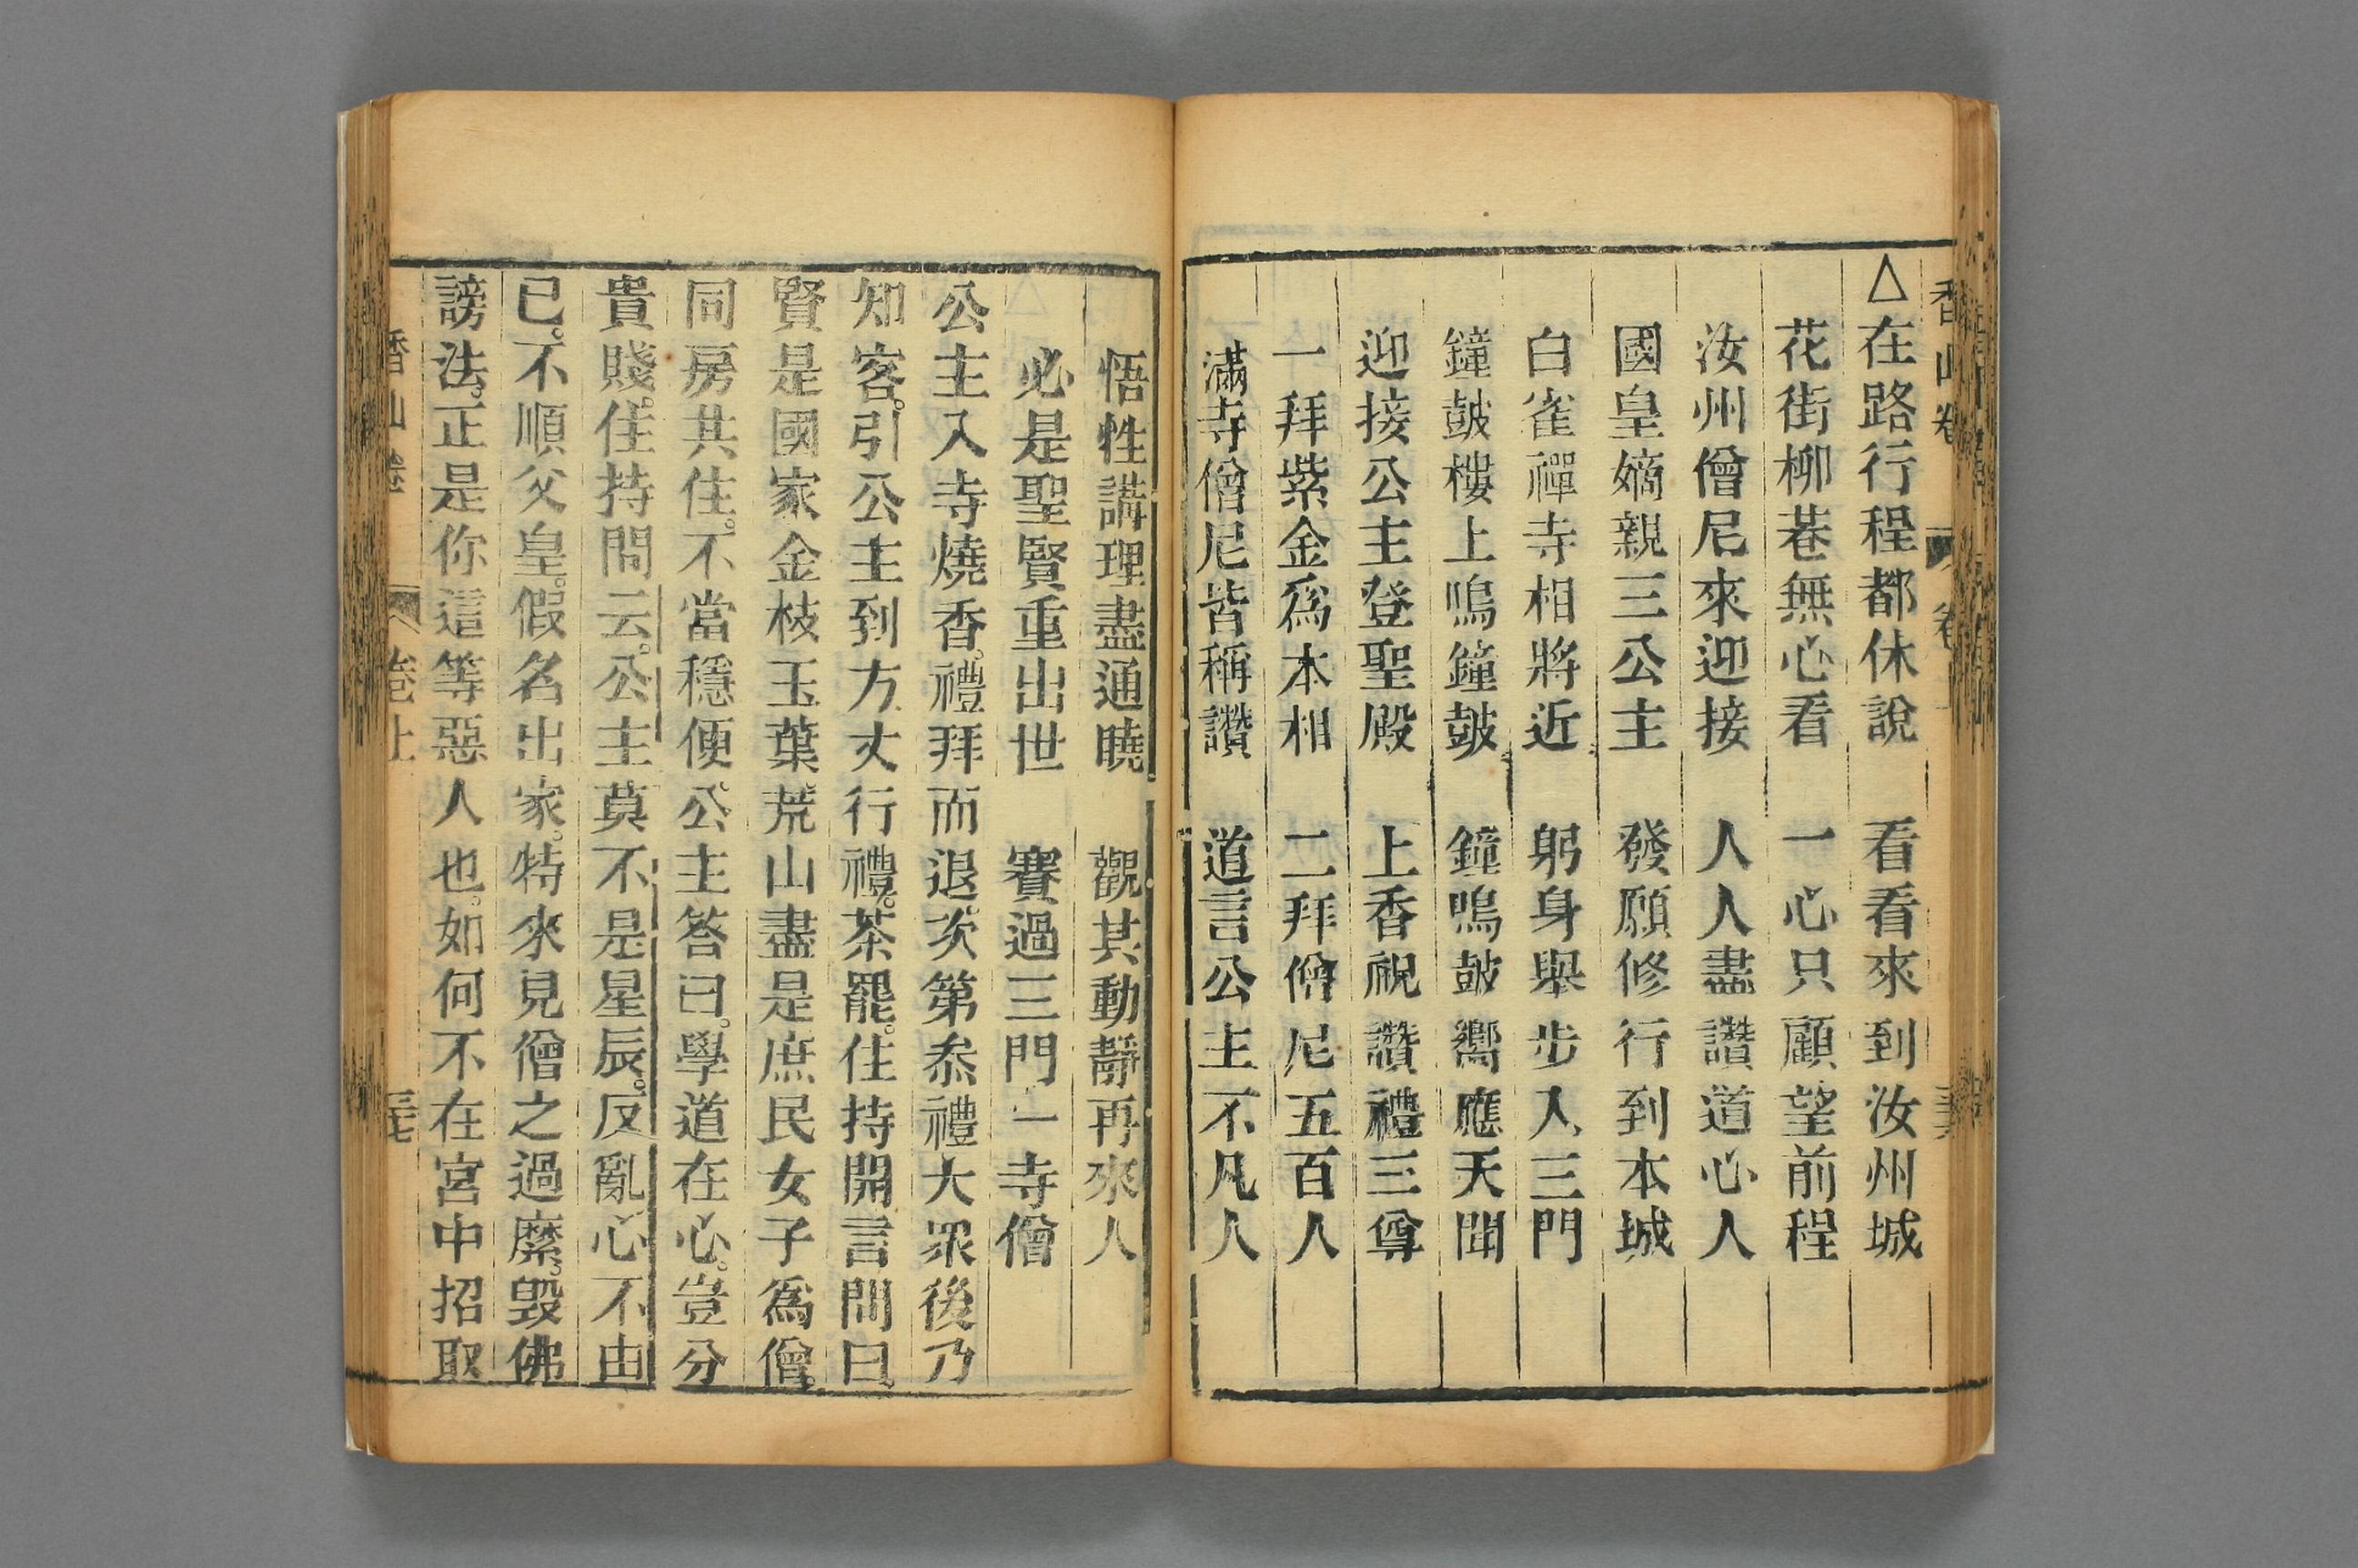 △在路行程都休說　看看來到汝州城
花街柳巷無心看　一心只顧望前程
汝州僧尼來迎接　人人盡讚道心人
國皇嫡親三公主　發願修行到本城
白雀禪寺相將近　躬身舉步入三門
鐘皷樓上鳴鐘皷　鐘鳴皷嚮應天聞
迎接公主登聖殿　上香祝讚禮三尊
一拜紫金爲本相　二拜僧尼五百人
滿寺僧尼皆稱讚　道言公主不凡人
悟性講理盡通曉　觀其動靜再來人
必是聖賢重出世　賽過三門一寺僧
公主入寺燒香。禮拜而退。次第叅禮大眾後乃
知客。引公主到方丈行禮。茶罷。住持開言問曰。
賢是國家金枝玉葉。荒山盡是庶民女子爲僧。
同房共住。不當穩便。公主答曰。學道在心。豈分
貴賤。住持問云。公主莫不是星辰。反亂心不由
已。不順父皇。假名出家。特來見僧之過麽。毀佛
謗法。正是你這等惡人也。如何不在宮中招取
香山卷　卷上　三七